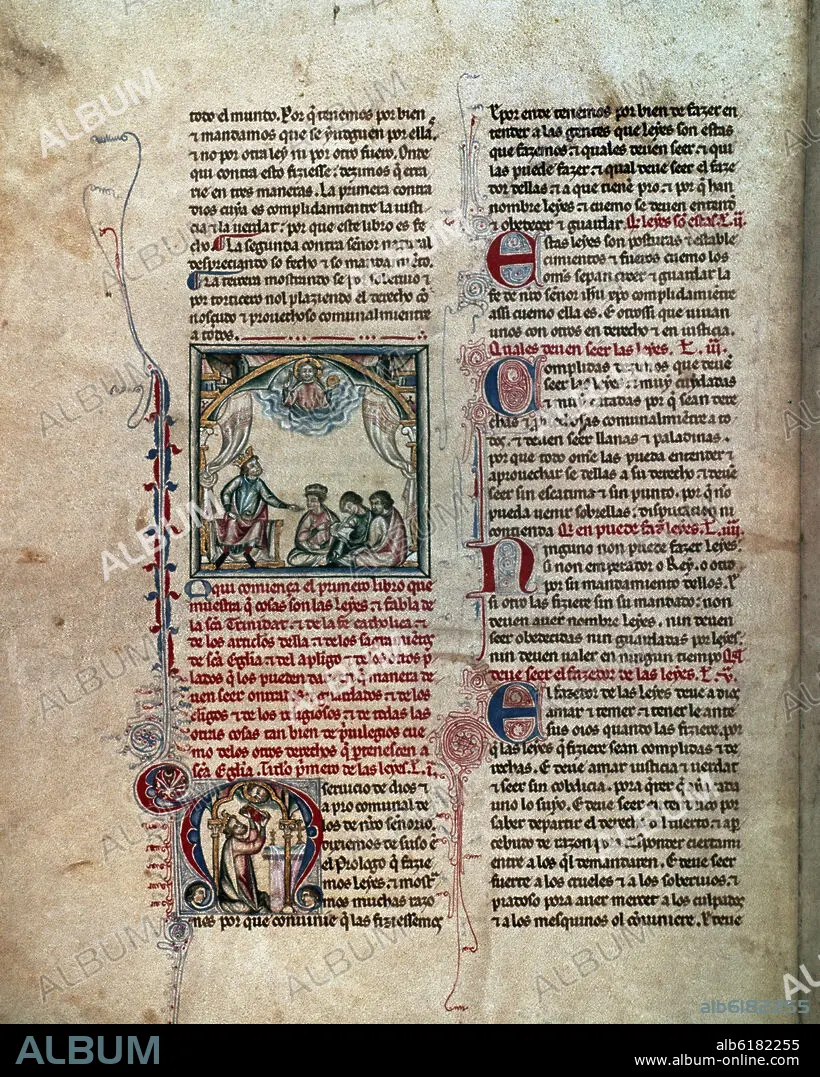 todo el mundo. Por q̃ tenemos por bien
⁊ mandamos que se yudguen por ella.
⁊ no por otra ley ni por otro fuero. Onde
qui contra esto fiziesse: dezimos q̃ erra
rie en tres maneras. La primera contra
dios cuya es complidamientre la iusti
cia ⁊ la uerdat: ⁊ por que este libro es fe
cho. La segunda contra señor natural
despreciando so fecho ⁊ so mandamiẽto.
La tercera mostrando se por soberuio ⁊
por torticero nol plaziendo el derecho cõ
nosçudo ⁊ prouechoso comunalmientre
a todos.
Aqui comiença el primero libro que
muestra q̃ cosas son las leyes. ⁊ fabla de
la sc̃a Trinidat. ⁊ de la fe catholica. ⁊
de los articlos della. ⁊ de los sacramẽtos
de sc̃a Eglia ⁊ del apligo ⁊ de los otros p̃
lados q̃ los pueden dar. en q̃ manera de
uen seer onrrados. ⁊ guardados ⁊ de los
clerigos ⁊ de los religiosos ⁊ de todas las
otras cosas tan bien de p̃uilegios cue
mo de los otros derechos q̃ p̃tenescen a
sc̃a Eglia. Titulo p̃mero de las leyes. L. i.
A seruicio de dios ⁊
a pro comunal de
los de nr̃o sennorio.
dixiemos de suso ẽ
el Prologo q̃ fazie
mos leyes. ⁊ mostr̃a
mos muchas razo
nes por que conuinie q̃ las fiziessemos
E por ende tenemos por bien de fazer en
tender a las gentes que leyes son estas
que fazemos. ⁊ quales deuen seer. ⁊ qui
las puede fazer. ⁊ qual deue seer el faze
dor dellas. ⁊ a que tienẽ pro. ⁊ por q̃ han
nombre leyes. ⁊ cuemo se deuen entender
⁊ obedecer ⁊ guardar. Q̃ leyes sõ estas. L. ii.
Estas leyes son posturas ⁊ estable
cimientos ⁊ fueros cuemo los
om̃s sepan creer ⁊ guardar la
fe de nr̃o señor ihu xp̃o complidamiẽtre
assi cuemo ella es. E otrossi que uiuan
unos con otros en derecho ⁊ en iusticia.
Quales deuen seer las leyes. L. iii.
Complidas dezimos que deuẽ
seer las leyes. ⁊ muy cuydadas
⁊ muy catadas por q̃ sean dere
chas ⁊ prouechosas comunalmientre a to
dos. ⁊ deuen seer llanas ⁊ paladinas.
por que todo ome las pueda entender ⁊
aprouechar se dellas a su derecho. ⁊ deuẽ
seer sin escatima ⁊ sin punto. por q̃ no
pueda uenir sobrellas. disputacion ni
contienda. Qi en puede faz̃ leyes. L. iiii.
Ninguno non puede fazer leyes.
si non emperador o Rey. o otro
por su mandamiento dellos. E
si otro las fiziere sin su mandado: non
deuen auer nombre leyes. nin deuen
seer obedecidas nin guardadas por leyes.
nin deuen ualer en ningun tiempo. Q̃l
deue seer el fazedor de las leyes. L. v.
El fazedor de las leyes deue a dios
amar ⁊ temer ⁊ tener le ante
sus oios quanto las fiziere. por
q̃ las leyes q̃ fiziere sean complidas ⁊ de
rechas. E deue amar iusticia ⁊ uerdat
⁊ seer sin cobdicia. pora q̃rer q̃ aya cada
uno lo suyo. E deue seer
saber departir el derecho del tuerto. ⁊ aper
cebudo de razon pora responder ciertami
entre a los q̃l demandaren. E deue seer
fuerte a los crueles ⁊ a los soberuios. ⁊
piadoso pora auer mercet a los culpados
⁊ a los mesquinos ol cõuiniere. E deue
ALBUM
alb6182255
www.album-online.com